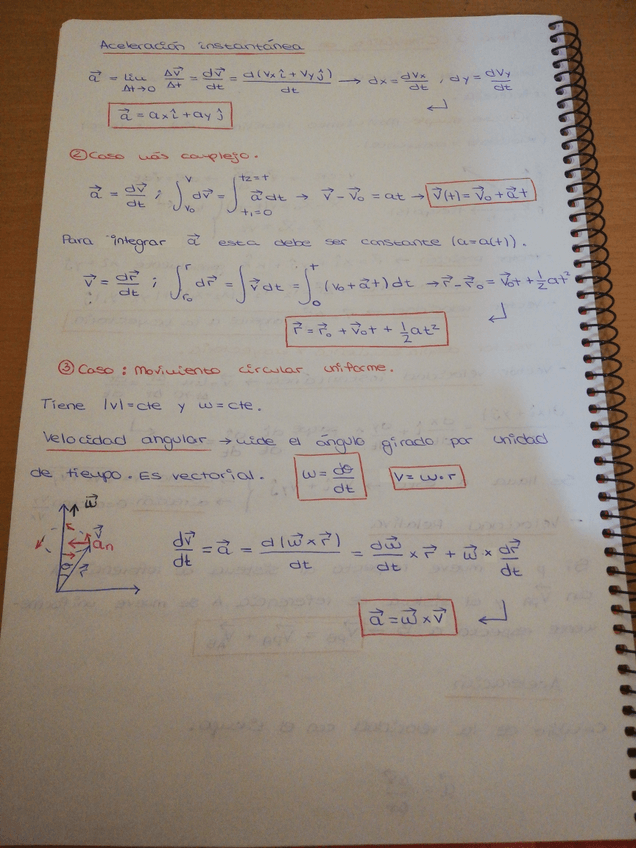 Aceleración instantánea
a⃗ = lim Δt→0 Δv⃗/Δt = dv⃗/dt = d(vx î + vy ĵ)/dt → dx = dvx/dt , dy = dvy/dt
a⃗ = ax î + ay ĵ ↵
② Caso más complejo.
a⃗ = dv⃗/dt ; ∫_{v₀}^{v} dv⃗ = ∫_{t₁=0}^{t₂=t} a⃗ dt → v⃗ - v⃗₀ = at → v⃗(t) = v⃗₀ + a⃗t
Para integrar a⃗ esta debe ser constante (a=a(t)).
v⃗ = dr⃗/dt ; ∫_{r₀}^{r} dr⃗ = ∫ v⃗ dt = ∫_{0}^{t} (v₀ + a⃗t) dt → r⃗ - r⃗₀ = v⃗₀t + ½at²
r⃗ = r⃗₀ + v⃗₀t + ½at² ↵
③ Caso: Movimiento circular uniforme.
Tiene |v|=cte y ω=cte.
Velocidad angular → mide el ángulo girado por unidad
de tiempo. Es vectorial. ω = dθ/dt v = ω·r
ω⃗
v⃗
an
θ r⃗
dv⃗/dt = a⃗ = d(ω⃗ × r⃗)/dt = dω⃗/dt × r⃗ + ω⃗ × dr⃗/dt
a⃗ = ω⃗ × v⃗ ↵